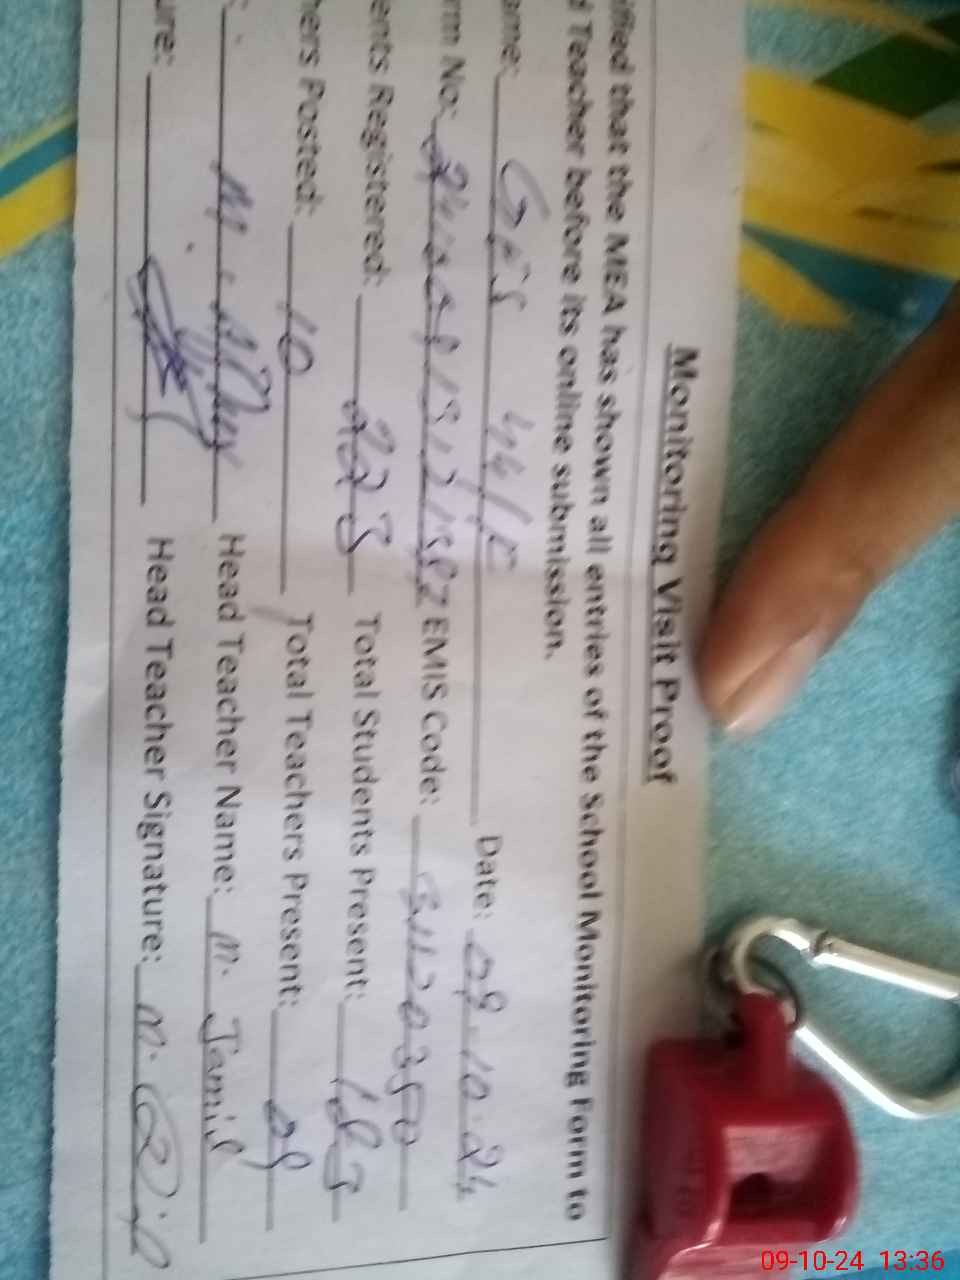 Monitoring Visit Proof
ified that the MEA has shown all entries of the School Monitoring Form to
d Teacher before its online submission.
ame: GPS 44/C Date: 09.10.24
rm No: EMIS Code: 31120350
ents Registered: 223 Total Students Present:
hers Posted: 10 Total Teachers Present: 09
: M. Head Teacher Name: M. Jamil
ure: Head Teacher Signature: M.
09-10-24 13:36